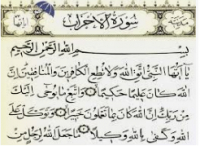 سورة الأحزاب
بسم الله الرحمن الرحيم
يا أيها النبي اتق الله ولا تطع الكافرين والمنافقين إن
الله كان عليما حكيما واتبع ما يوحى إليك
من ربك إن الله كان بما تعملون خبيرا وتوكل على
الله وكفى بالله وكيلا ما جعل الله لرجل من